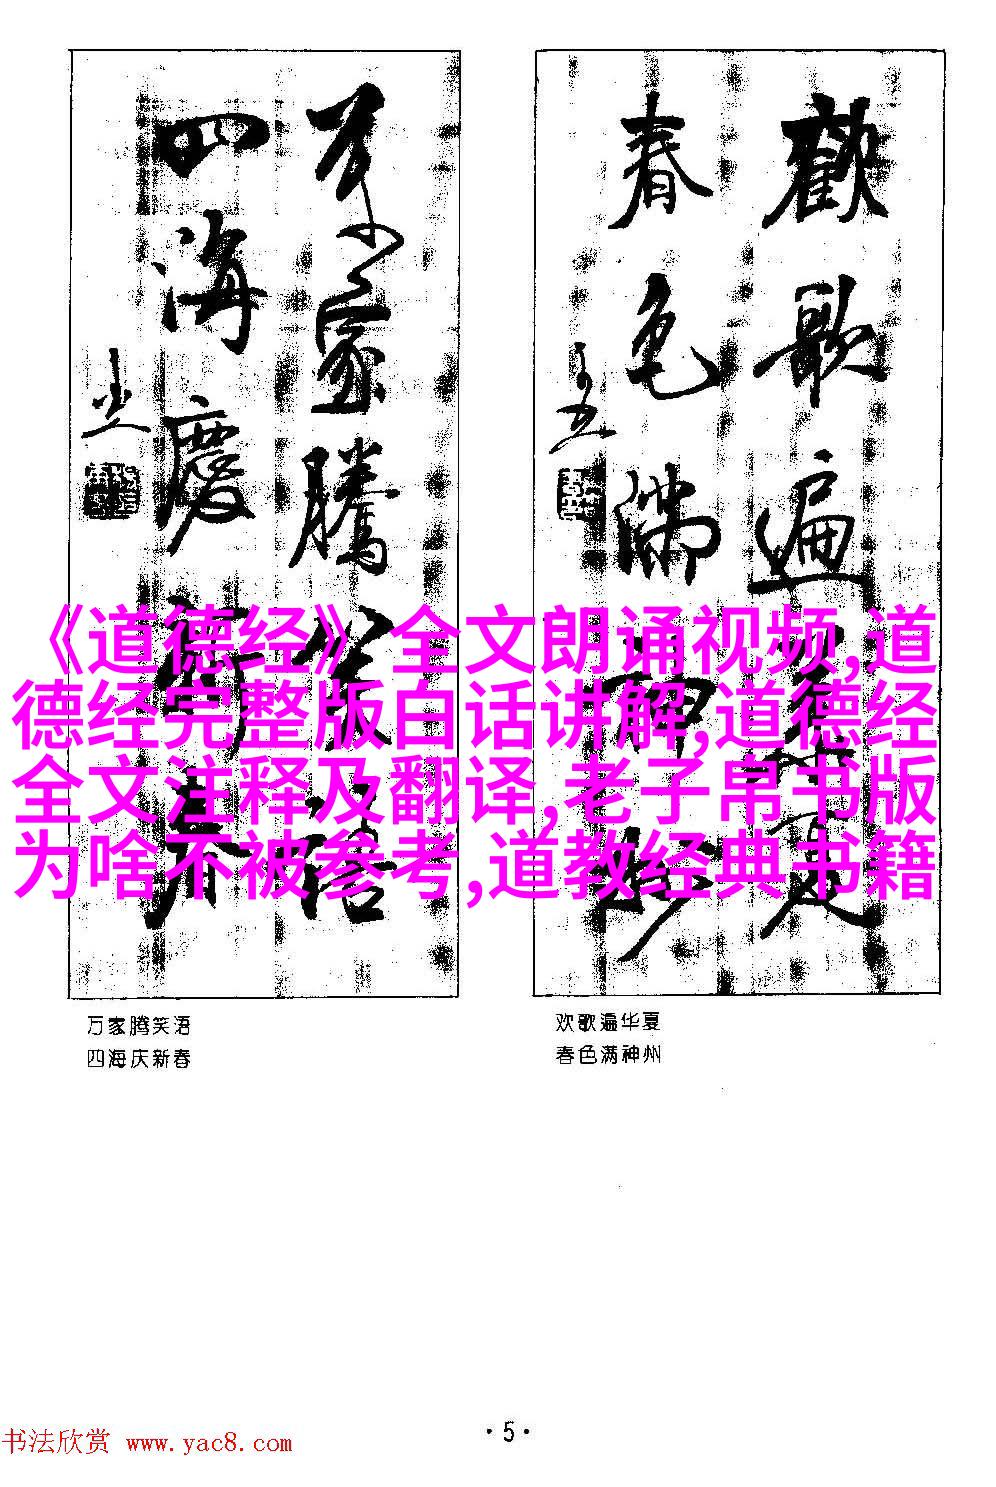 萬家騰笑語
四海慶新春
歡歌遍華夏
春色滿神州
《道德经》全文朗诵视频,道
德经完整版白话讲解,道德经
全文注释及翻译,老子帛书版
为啥不被参考,道教经典书籍
万家腾笑语
四海庆新春
欢歌遍华夏
春色满神州
·5·
书法欣赏 www.yac8.com